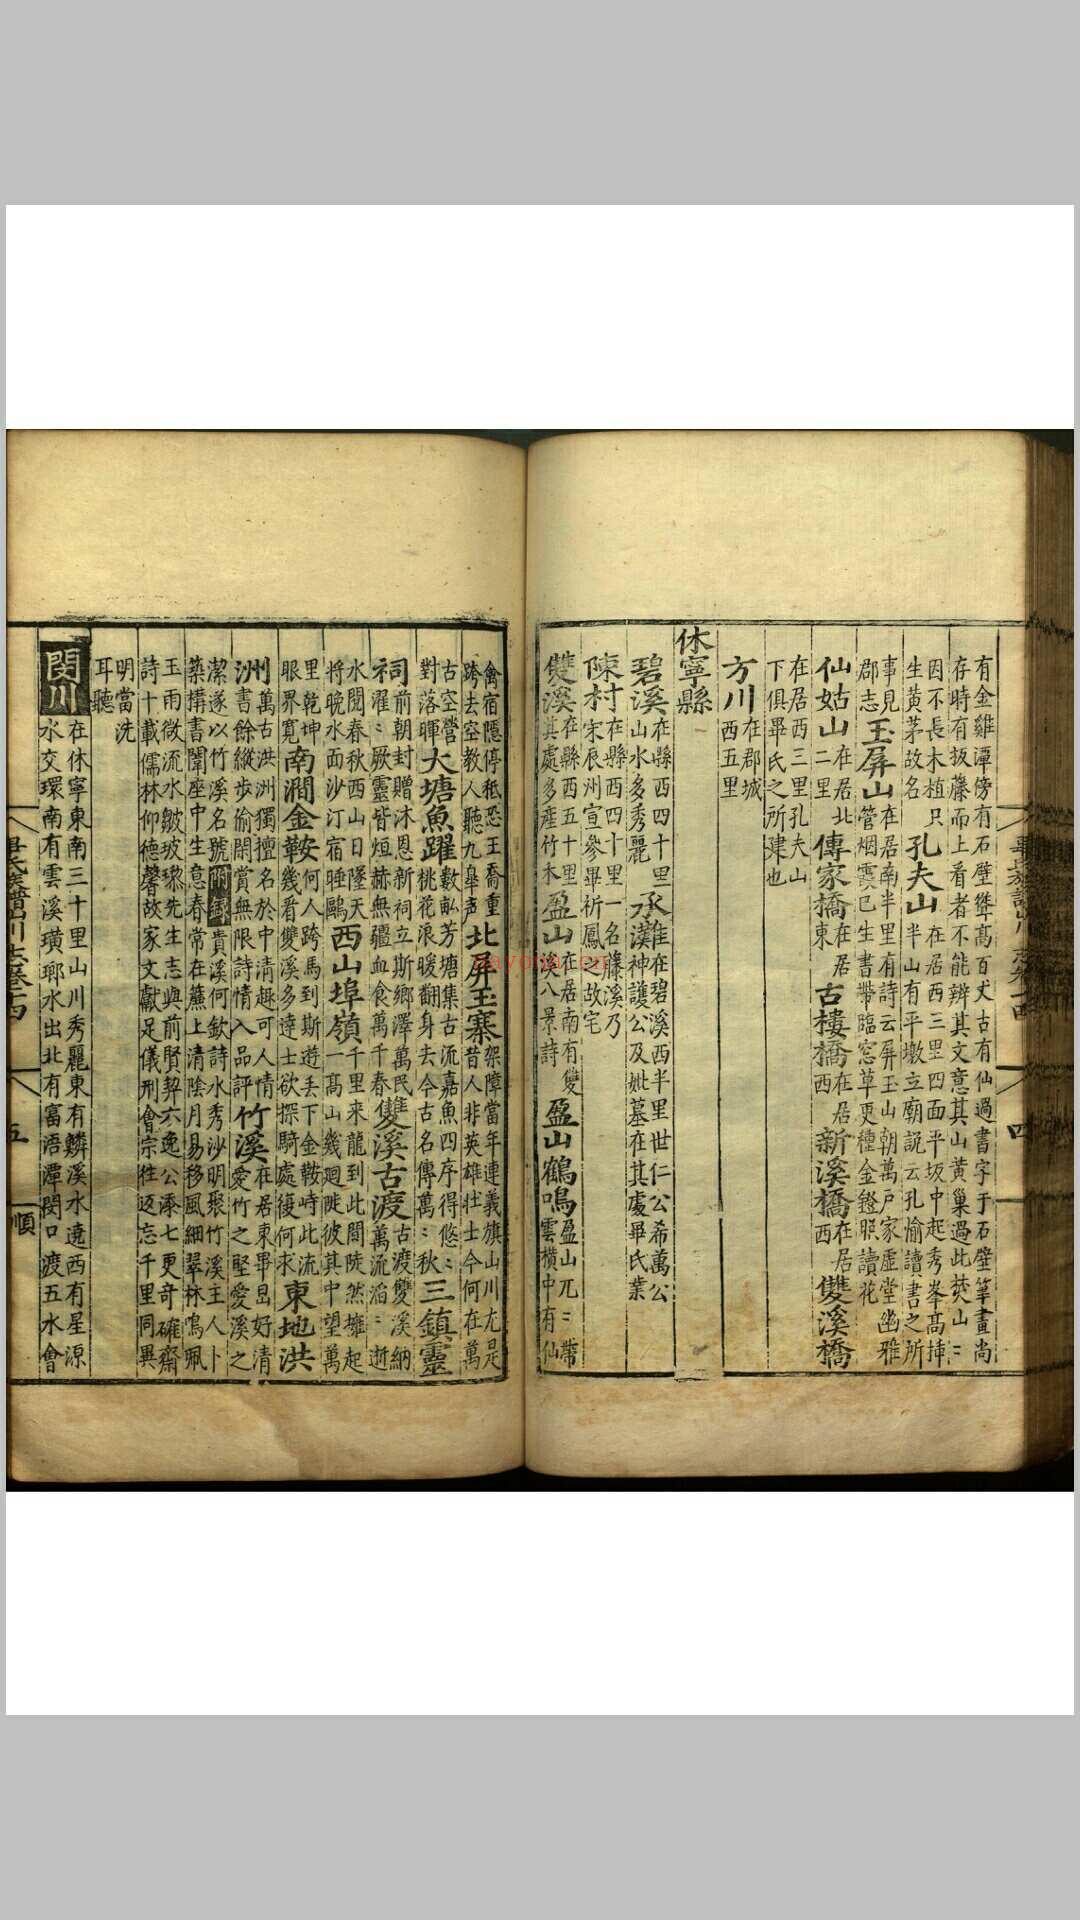 有金雞潭傍有石壁聳高百丈古有仙過書字于石壁筆畫尚
存時有扳藤而上看者不能辨其文意其山黃巢過此焚山〻
因不長木植只
生黃茅故名
孔夫山
在居西三里四面平坂中起秀峯高揷
半山有平墩立廟説云孔愉讀書之所
事見
郡志
玉屏山
在居南半里有詩云屏玉山朝萬戸家虛堂幽雅
管烟霞已生書帶臨窓草更種金鐙照讀花
仙姑山
在居北
二里
傳家橋
在居
東
古樓橋
在居
西
新溪橋
在居
西
雙溪橋
在居西三里孔夫山
下俱畢氏之所建也
方川
在郡城
西五里
休寧縣
碧溪
在縣西四十里
山水多秀麗
承灘
在碧溪西半里世仁公希萬公
漢神護公及妣墓在其處畢氏業
陳村
在縣西四十里一名藤溪乃
宋辰州宣參畢祈鳳故宅
雙溪
在縣西五十里
其處多產竹木
盈山
在居南有雙
溪八景詩
盈山鶴鳴
盈山兀〻帶
雲横中有仙
禽宿隱停秪恐王喬重
跨去空教人聽九臯声
北屏玉寨
架障當年連義旗山川尤是
昔人非英雄壮士今何在萬
古空營
對落暉
大塘魚躍
數畝芳塘集古流嘉魚四序得悠〻
桃花浪暖翻身去今古名傳萬〻秋
三鎮靈
祠
前朝封贈沐恩新祠立斯鄉澤萬民
濯〻厥靈皆烜赫無疆血食萬千春
雙溪古渡
古渡雙溪納
萬流滔〻逝
水閱春秋西山日墜天
將晩水面沙汀宿睡鷗
西山埠嶺
千里来龍到此間陡然擁起
一髙山幾廻陡彼其中望萬
里乾坤
眼界寛
南澗金鞍
何人跨馬到斯遊丢下金鞍峙此流
幾看雙溪多逹士欲探騎處復何求
東地洪
洲
萬古洪洲獨擅名於中清趣可人情
書餘縱歩偷閒賞無限詩情入品評
竹溪
在居東畢昂好清
愛竹之堅愛溪之
潔遂以竹溪名號附録貴溪何欽詩水秀沙明聚竹溪主人卜
築構書闈座中生意春常在簾上清陰月易移風細翠林鳴珮
玉雨微流水皺玻瓈先生志與前賢契六逸公添七更奇確齋
詩十載儒林仰德馨故家文獻足儀刑會宗徃返忘千里同異
明當洗
耳聽
閔川
在休寧東南三十里山川秀麗東有鱗溪水遶西有星源
水交環南有雲溪璜瑯水出北有富浯潭閔口渡五水會
五
順
四